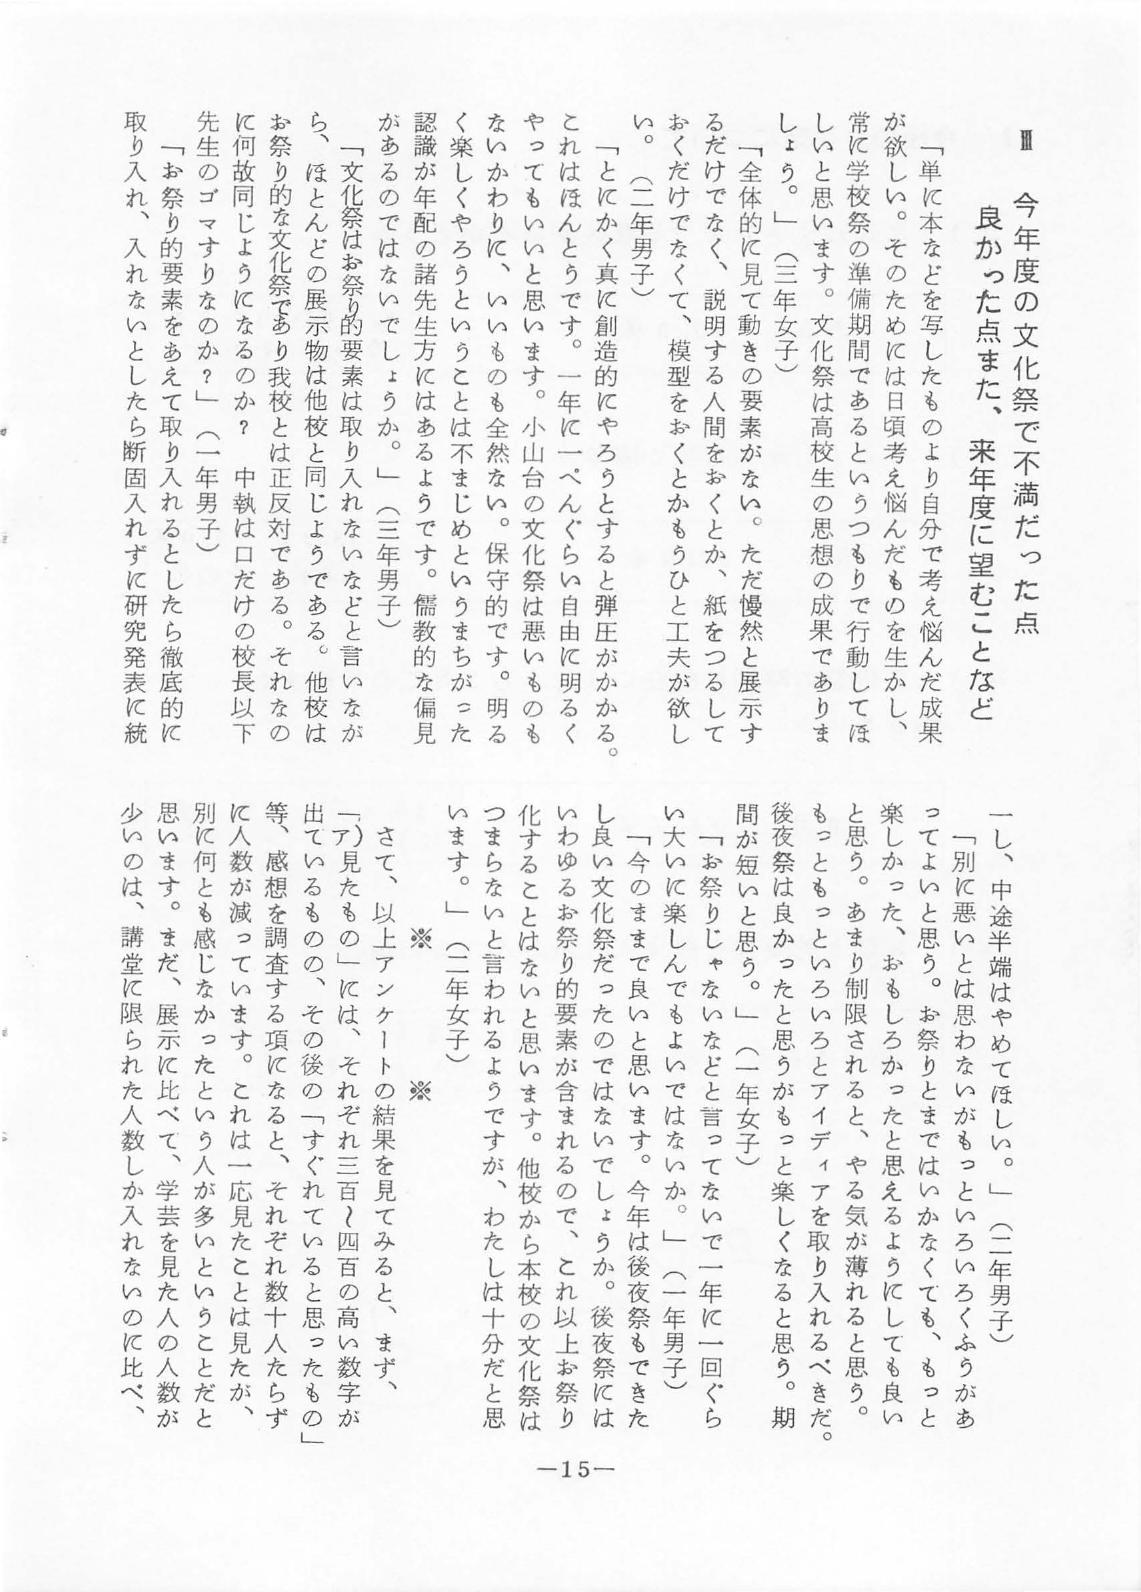 Ⅲ　今年度の文化祭で不満だった点
良かった点また、来年度に望むことなど
「単に本などを写したものより自分で考え悩んだ成果
が欲しい。そのためには日頃考え悩んだものを生かし、
常に学校祭の準備期間であるというつもりで行動してほ
しいと思います。文化祭は高校生の思想の成果でありま
しょう。」（三年女子）
「全体的に見て動きの要素がない。ただ慢然と展示す
るだけでなく、説明する人間をおくとか、紙をつるして
おくだけでなくて、模型をおくとかもうひと工夫が欲し
い。（二年男子）
「とにかく真に創造的にやろうとすると弾圧がかかる。
これはほんとうです。一年に一ぺんぐらい自由に明るく
やってもいいと思います。小山台の文化祭は悪いものも
ないかわりに、いいものも全然ない。保守的です。明る
く楽しくやろうということは不まじめというまちがった
認識が年配の諸先生方にはあるようです。儒教的な偏見
があるのではないでしょうか。」（三年男子）
「文化祭はお祭り的要素は取り入れないなどと言いなが
ら、ほとんどの展示物は他校と同じようである。他校は
お祭り的な文化祭であり我校とは正反対である。それなの
に何故同じようになるのか？　中執は口だけの校長以下
先生のゴマすりなのか？」（一年男子）
「お祭り的要素をあえて取り入れるとしたら徹底的に
取り入れ、入れないとしたら断固入れずに研究発表に統
一し、中途半端はやめてほしい。」（二年男子）
「別に悪いとは思わないがもっといろいろくふうがあ
ってよいと思う。お祭りとまではいかなくても、もっと
楽しかった、おもしろかったと思えるようにしても良い
と思う。あまり制限されると、やる気が薄れると思う。
もっともっといろいろとアイディアを取り入れるべきだ。
後夜祭は良かったと思うがもっと楽しくなると思う。期
間が短いと思う。」（一年女子）
「お祭りじゃないなどと言ってないで一年に一回ぐら
い大いに楽しんでもよいではないか。」（一年男子）
「今のままで良いと思います。今年は後夜祭もできた
し良い文化祭だったのではないでしょうか。後夜祭には
いわゆるお祭り的要素が含まれるので、これ以上お祭り
化することはないと思います。他校から本校の文化祭は
つまらないと言われるようですが、わたしは十分だと思
います。」（二年女子）
※　　※
さて、以上アンケートの結果を見てみると、まず、
「ア）見たもの」には、それぞれ三百〜四百の高い数字が
出ているものの、その後の「すぐれていると思ったもの」
等、感想を調査する項になると、それぞれ数十人たらず
に人数が減っています。これは一応見たことは見たが、
別に何とも感じなかったという人が多いということだと
思います。まだ、展示に比べて、学芸を見た人の人数が
少いのは、講堂に限られた人数しか入れないのに比べ、
—15—